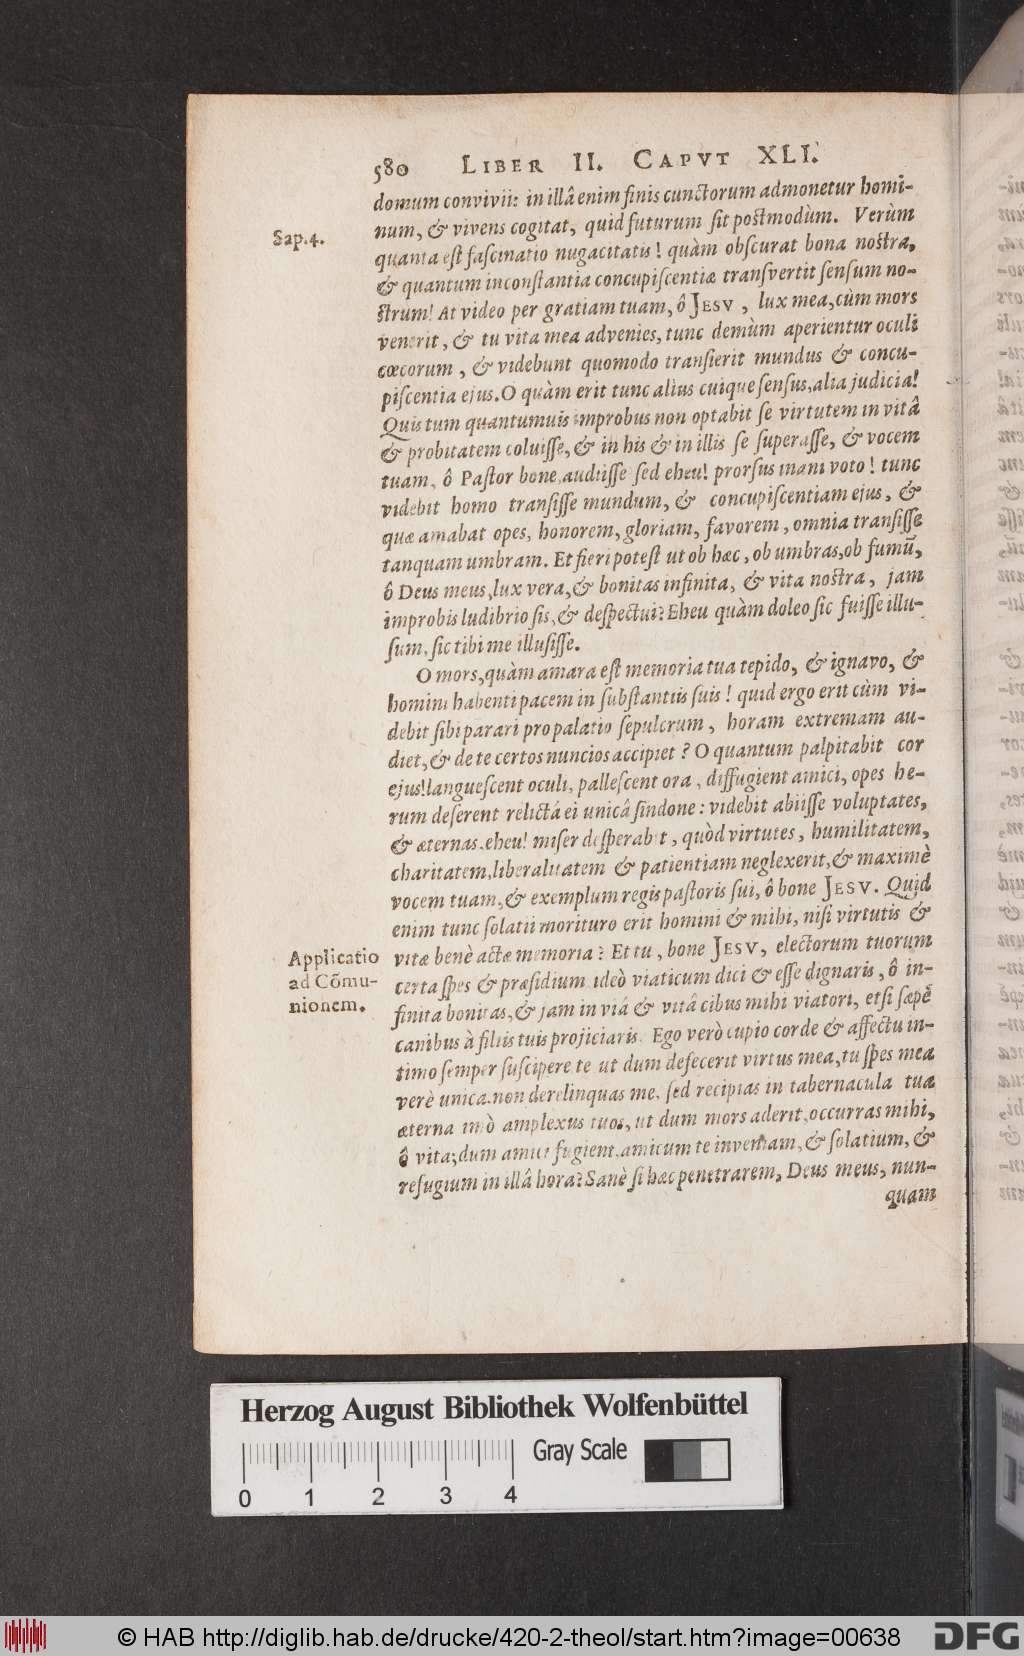 580 LIBER II. CAPVT XLI.
domum convivii: in illâ enim finis cunctorum admonetur homi-
num, & vivens cogitat, quid futurum sit postmodùm. Verùm
Sap. 4.
quanta est fascinatio nugacitatis! quàm obscurat bona nostra,
& quantum inconstantia concupiscentiæ transvertit sensum no-
strum! At video per gratiam tuam, ô JESV, lux mea, cùm mors
venerit, & tu vita mea advenies, tunc demùm aperientur oculi
cœcorum, & videbunt quomodo transierit mundus & concu-
piscentia ejus. O quàm erit tunc alius cuique sensus, alia judicia!
Quis tum quantumuis improbus non optabit se virtutem in vitâ
& probitatem coluisse, & in his & in illis se superasse, & vocem
tuam, ô Pastor bone, audiisse sed eheu! prorsus inani voto! tunc
videbit homo transisse mundum, & concupiscentiam ejus, &
quæ amabat opes, honorem, gloriam, favorem, omnia transisse
tanquam umbram. Et fieri potest ut ob hæc, ob umbras, ob fumū,
ô Deus meus, lux vera, & bonitas infinita, & vita nostra, jam
improbis ludibrio sis, & despectui? Eheu quàm doleo sic fuisse illu-
sum, sic tibi me illusisse.
O mors, quàm amara est memoria tua tepido, & ignavo, &
homini habenti pacem in substantiis suis! quid ergo erit cùm vi-
debit sibi parari pro palatio sepulcrum, horam extremam au-
diet, & de te certos nuncios accipiet? O quantum palpitabit cor
ejus! languescent oculi, pallescent ora, diffugient amici, opes he-
rum deserent relictâ ei unicâ sindone: videbit abiisse voluptates,
& æternas, eheu! miser desperabit, quòd virtutes, humilitatem,
charitatem, liberalitatem & patientiam neglexerit, & maximè
vocem tuam, & exemplum regis pastoris sui, ô bone JESV. Quid
enim tunc solatii morituro erit homini & mihi, nisi virtutis &
vitæ benè actæ memoria? Et tu, bone JESV, electorum tuorum
Applicatio
ad Cõmu-
nionem.
certa spes & præsidium ideò viaticum dici & esse dignaris, ô in-
finita bonitas, & jam in viâ & vitâ cibus mihi viatori, etsi sæpè
canibus à filiis tuis projiciaris. Ego verò cupio corde & affectu in-
timo semper suscipere te ut dum defecerit virtus mea, tu spes mea
verè unica, non derelinquas me, sed recipias in tabernacula tua
æterna imò amplexus tuos, ut dum mors aderit, occurras mihi,
ô vita; dum amici fugient, amicum te inveniam, & solatium, &
refugium in illâ hora? Sanè si hæc penetrarem, Deus meus, nun-
quam
Herzog August Bibliothek Wolfenbüttel
Gray Scale
0 1 2 3 4
© HAB http://diglib.hab.de/drucke/420-2-theol/start.htm?image=00638
DFG